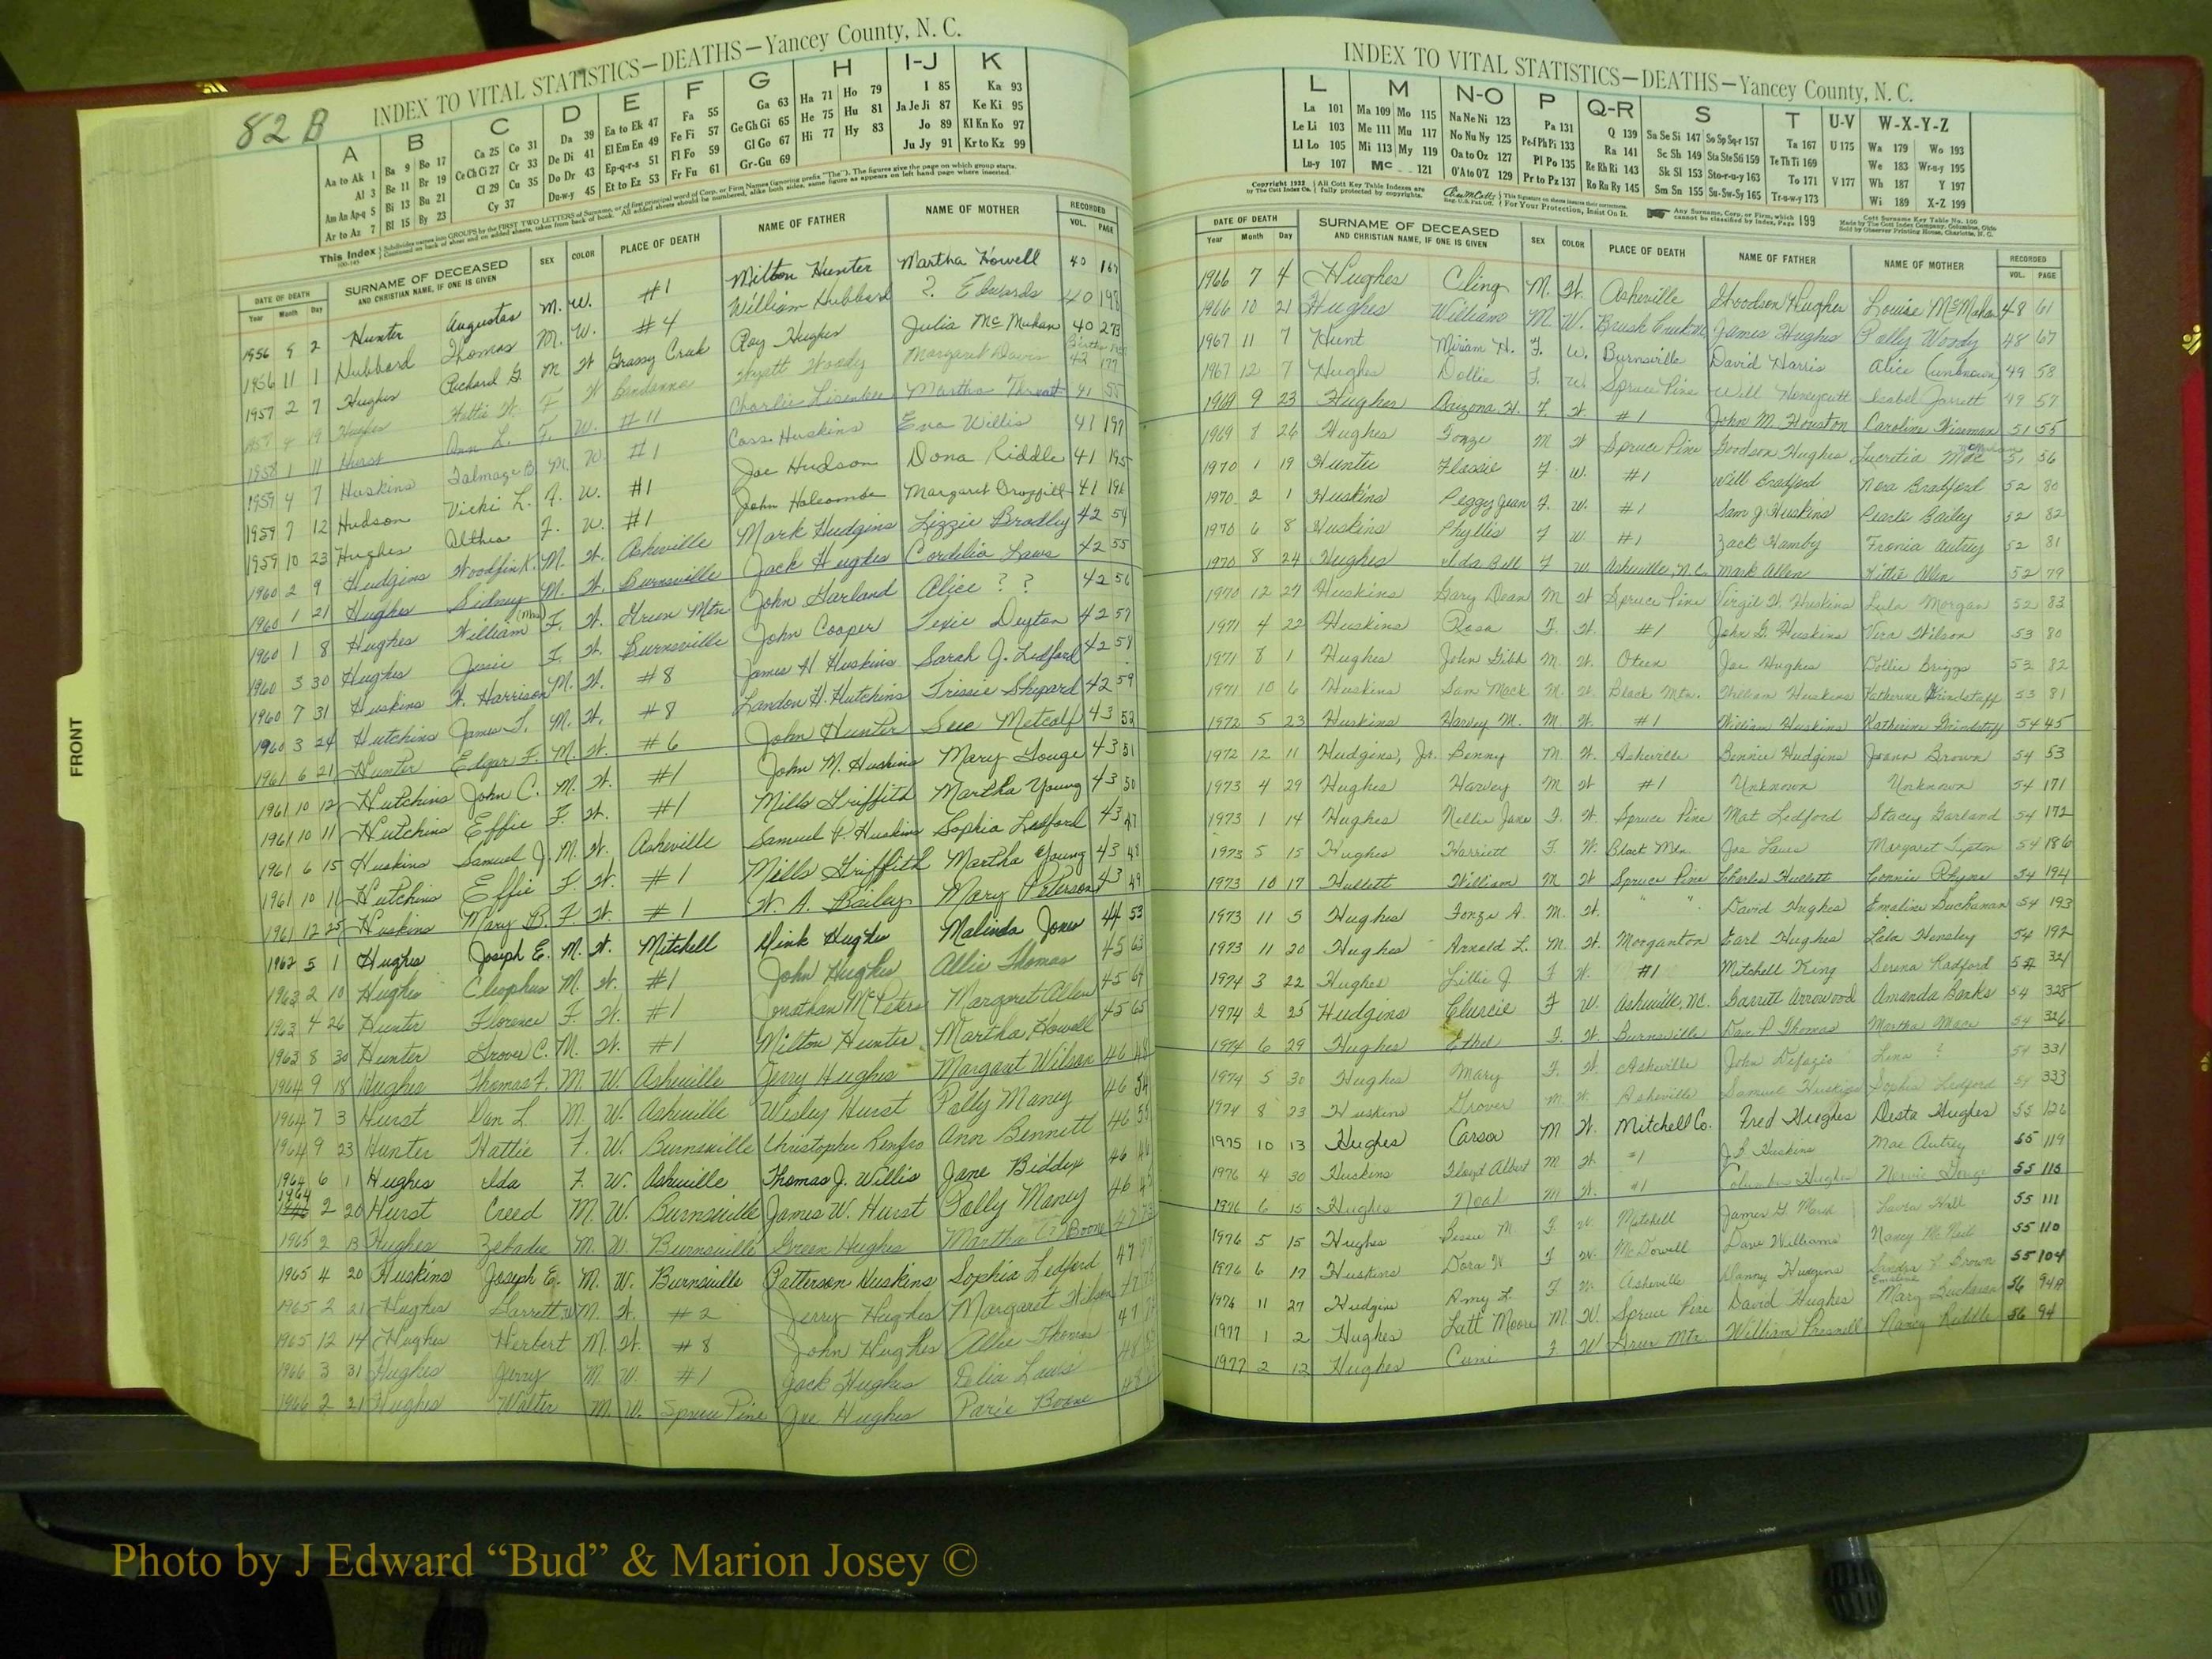 82 B
INDEX TO VITAL STATISTICS—DEATHS—Yancey County, N. C.
A B C D E F G H I-J K
Aa to Ak 1 Ba 9 Bo 17 Ca 25 Co 31 Da 39 Ea to Ek 47 Fa 55 Ga 63 Ha 71 Ho 79 I 85 Ka 93
Al 3 Be 11 Br 19 Ce Ch Ci 27 Cr 33 De Di 41 El Em En 49 Fe Fi 57 Ge Gh Gi 65 He 75 Hu 81 Ja Je Ji 87 Ke Ki 95
Am An Ap-q 5 Bi 13 Bu 21 Cl 29 Cu 35 Do Dr 43 Ep-q-r-s 51 Fl Fo 59 Gl Go 67 Hi 77 Hy 83 Jo 89 Kl Kn Ko 97
Ar to Az 7 Bl 15 By 23 Cy 37 Du-w-y 45 Et to Ez 53 Fr Fu 61 Gr-Gu 69 Ju Jy 91 Kr to Kz 99
DATE OF DEATH SURNAME OF DECEASED AND CHRISTIAN NAME, IF ONE IS GIVEN SEX COLOR PLACE OF DEATH NAME OF FATHER NAME OF MOTHER RECORDED
Year Month Day VOL. PAGE
1956 9 2 Hunter Augustas M. W. #1 Milton Hunter Martha Howell 40
1956 11 1 Hubbard Thomas M. W. #4 William Hubbard ? Edwards 40 198
1957 2 7 Hughes Richard G. M W Grassy Creek Roy Hughes Julia McMahan 40 273
4 19 Hughes Hattie W. F W Bandanna Wyatt Woody Margaret Davis 42 177
1958 1 11 Hurst Ann L. F. W. #11 Charlie Martha 41 55
1959 4 7 Huskins Talmage B. M. W. #1 Cass Huskins Eva Willis 41 197
1959 7 12 Hudson Vicki L. F. W. #1 Joe Hudson Dona Riddle 41 195
1959 10 23 Hughes Althea F. W. #1 John Holcombe Margaret 41 196
1960 2 9 Hudgins Woodfin K. M. W. Asheville Mark Hudgins Lizzie Bradley 42 54
1960 1 21 Hughes Sidney M. W. Burnsville Jack Hughes Cordelia Laws 42 55
1960 1 8 Hughes William (Mrs) F. W. Green Mtn John Garland Alice ? ? 42 56
1960 3 30 Hughes Jessie F. W. Burnsville John Cooper Texie Deyton 42 57
1960 7 31 Huskins W. Harrison M. W. #8 James H Huskins Sarah J. Ledford 42 58
1960 3 24 Hutchins James L. M. W. #8 Landon H. Hutchins Trissie Shepard 42 59
1961 6 21 Hunter Edgar F. M. W. #6 John Hunter Sue Metcalf 43 52
1961 10 12 Hutchins John C. M. W. #1 John M. Huskins Mary Gouge 43 51
1961 10 11 Hutchins Effie F. W. #1 Mills Griffith Martha Young 43 50
1961 6 15 Huskins Samuel J. M. W. Asheville Samuel P. Huskins Sophia Ledford 43 47
1961 10 11 Hutchins Effie F. W. #1 Mills Griffith Martha Young 43 48
1961 12 25 Huskins Mary B. F W. #1 W. A. Bailey Mary Peterson 43 49
1962 5 1 Hughes Joseph E. M. W. Mitchell Mink Hughes Malinda Jones 44 53
1963 2 10 Hughes Cleophus M. W. #1 John Hughes Allie Thomas 45 63
1963 4 26 Hunter Florence F. W. #1 Jonathan McPeters Margaret Allen 45 64
1963 8 30 Hunter Grover C. M. W. #1 Milton Hunter Martha Howell 45 65
1964 9 18 Hughes Thomas F. M. W. Asheville Jerry Hughes Margaret Wilson 46 48
1964 7 3 Hurst Dan L M. W. Asheville Wesley Hurst Polly Maney 46 54
1964 9 23 Hunter Hattie F. W. Burnsville Christopher Renfro Ann Bennett 46 55
1964 6 1 Hughes Ida F. W. Asheville Thomas J. Willis Jane Biddix 46
1964 2 20 Hurst Creed M. W. Burnsville James W. Hurst Polly Maney 46
1965 2 13 Hughes Zebadee M. W. Burnsville Green Hughes Martha Boone 47
1965 4 20 Huskins Joseph E. M. W. Burnsville Patterson Huskins Sophia Ledford 47
1965 2 21 Hughes Garrett M. W. #2 Jerry Hughes Margaret Wilson 47
1965 12 14 Hughes Herbert M. W. #8 John Hughes Allie Thomas 47
1966 3 31 Hughes Jerry M. W. #1 Jack Hughes Delia Laws 48
1966 2 21 Hughes Walter M. W. Spruce Pine Joe Hughes Parie Boone 48
FRONT
INDEX TO VITAL STATISTICS—DEATHS—Yancey County, N. C.
L M N-O P Q-R S T U-V W-X-Y-Z
La 101 Ma 109 Mo 115 Na Ne Ni 123 Pa 131 Q 139 Sa Se Si 147 So Sp Sq-r 157 Ta 167 U 175 Wa 179 Wo 193
Le Li 103 Me 111 Mu 117 No Nu Ny 125 Pe-f Ph Pi 133 Ra 141 Sc Sh 149 Sta Ste Sti 159 Te Th Ti 169 We 183 Wr-u-y 195
Ll Lo 105 Mi 113 My 119 Oa to Oz 127 Pl Po 135 Re Rh Ri 143 Sk Sl 153 Sto-r-u-y 163 To 171 V 177 Wh 187 Y 197
Lu-y 107 Mc 121 O'A to O'Z 129 Pr to Pz 137 Ro Ru Ry 145 Sm Sn 155 Su-Sw-Sy 165 Tr-u-w-y 173 Wi 189 X-Z 199
DATE OF DEATH SURNAME OF DECEASED AND CHRISTIAN NAME, IF ONE IS GIVEN SEX COLOR PLACE OF DEATH NAME OF FATHER NAME OF MOTHER RECORDED
Year Month Day VOL. PAGE
1966 7 4 Hughes Cling M. W. Asheville Goodson Hughes Louise McMahan 48 61
1966 10 21 Hughes William M W. Brush Creek James Hughes Polly Woody 48 67
1967 11 7 Hunt Miriam H. F. W. Burnsville David Harris Alice (unknown) 49 58
1967 12 7 Hughes Dollie F. W. Spruce Pine Will Honeycutt Isabel Jarrett 49 57
1969 9 23 Hughes Arizona H. F. W. #1 John M. Houston Caroline Wiseman 51 55
1969 8 26 Hughes Fonze M W Spruce Pine Goodson Hughes Lucretia 51 56
1970 1 19 Hunter Flossie F. W. #1 Will Bradford Nora Bradford 52 80
1970 2 1 Huskins Peggy Jean F. W. #1 Sam J Huskins Pearle Bailey 52 82
1970 6 8 Huskins Phyllis F W #1 Zack Hamby Fronia Autrey 52 81
1970 8 24 Hughes Ida Bell F W Asheville, N.C. Mark Allen Kittie Allen 52 79
1970 12 27 Huskins Gary Dean M W Spruce Pine Virgil W. Huskins Lula Morgan 52 83
1971 4 22 Huskins Rosa F. W. #1 John G. Huskins Vera Wilson 53 80
1971 8 1 Hughes John Gibb M W. Oteen Joe Hughes Dollie Briggs 53 82
1971 10 6 Huskins Sam Mack M. W. Black Mtn. William Huskins Katherine Grindstaff 53 81
1972 5 23 Huskins Harvey M. M W. #1 William Huskins Katherine Grindstaff 54 45
1972 12 11 Hudgins, Jr. Benny M W. Asheville Bennie Hudgins Joann Brown 54 53
1973 4 29 Hughes Harvey M W #1 Unknown Unknown 54 171
1973 1 14 Hughes Nellie Jane F. W. Spruce Pine Mat Ledford Stacey Garland 54 172
1973 5 15 Hughes Harriett F. W. Black Mtn. Joe Laws Margaret Tipton 54 186
1973 10 17 Hullett William M W Spruce Pine Charles Hullett Connie Rhyme 54 194
1973 11 5 Hughes Fonze A. M. W. " " David Hughes Emaline Buchanan 54 193
1973 11 20 Hughes Arnold L. M W. Morganton Earl Hughes Lela Hensley 54 192
1974 3 22 Hughes Lillie J F W. #1 Mitchell King Serena Radford 54 321
1974 2 25 Hudgins Clurcie F W. Asheville, N.C. Garrett Arrowood Amanda Banks 54 328
1974 6 29 Hughes Ethel F. W. Burnsville Dave P. Thomas Martha Mace 54 326
1974 5 30 Hughes Mary F. W. Asheville John Lena ? 54 331
1974 8 23 Huskins Grover M W. Asheville Samuel Huskins Sophia Ledford 54 333
1975 10 13 Hughes Carson M W. Mitchell Co. Fred Hughes Desta Hughes 55 126
1976 4 30 Huskins Floyd Albert M W. #1 J.B. Huskins Mae Autrey 55 119
1976 6 15 Hughes Noah M W. #1 Columbus Hughes 55 115
1976 5 15 Hughes Bessie M. F. W. Mitchell James G. Laura Hall 55 111
1976 6 17 Huskins Dora W F W. McDowell Dave Williams Nancy McNeil 55 110
1976 11 27 Hudgins Amy L. F W. Asheville Danny Hudgins Sandra Brown 55 104
1977 1 2 Hughes Latt Moore M W. Spruce Pine David Hughes Mary Emaline Buchanan 56 94A
1977 2 12 Hughes Cumi F W Green Mtn William Presnell Nancy Riddle 56 94
Photo by J Edward “Bud” & Marion Josey ©